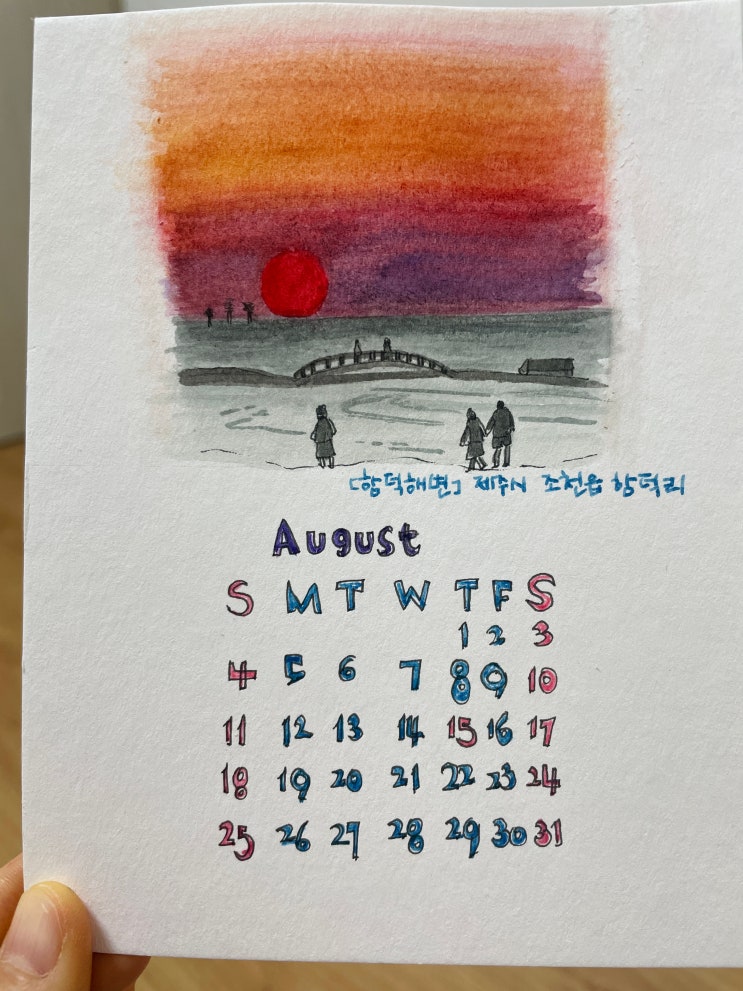 [함덕해변] 제주시 조천읍 함덕리
August
S M T W T F S
1 2 3
4 5 6 7 8 9 10
11 12 13 14 15 16 17
18 19 20 21 22 23 24
25 26 27 28 29 30 31